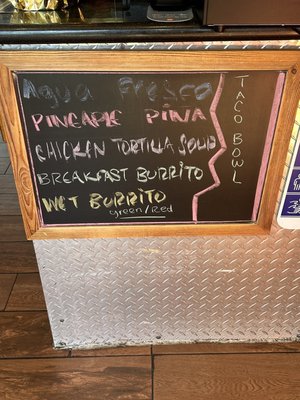 Agua Fresca
PINEAPLE PIÑA
CHICKEN TORTILLA SOUP
BREAKFAST BURRITO
WET BURRITO
green/red
TACO BOWL